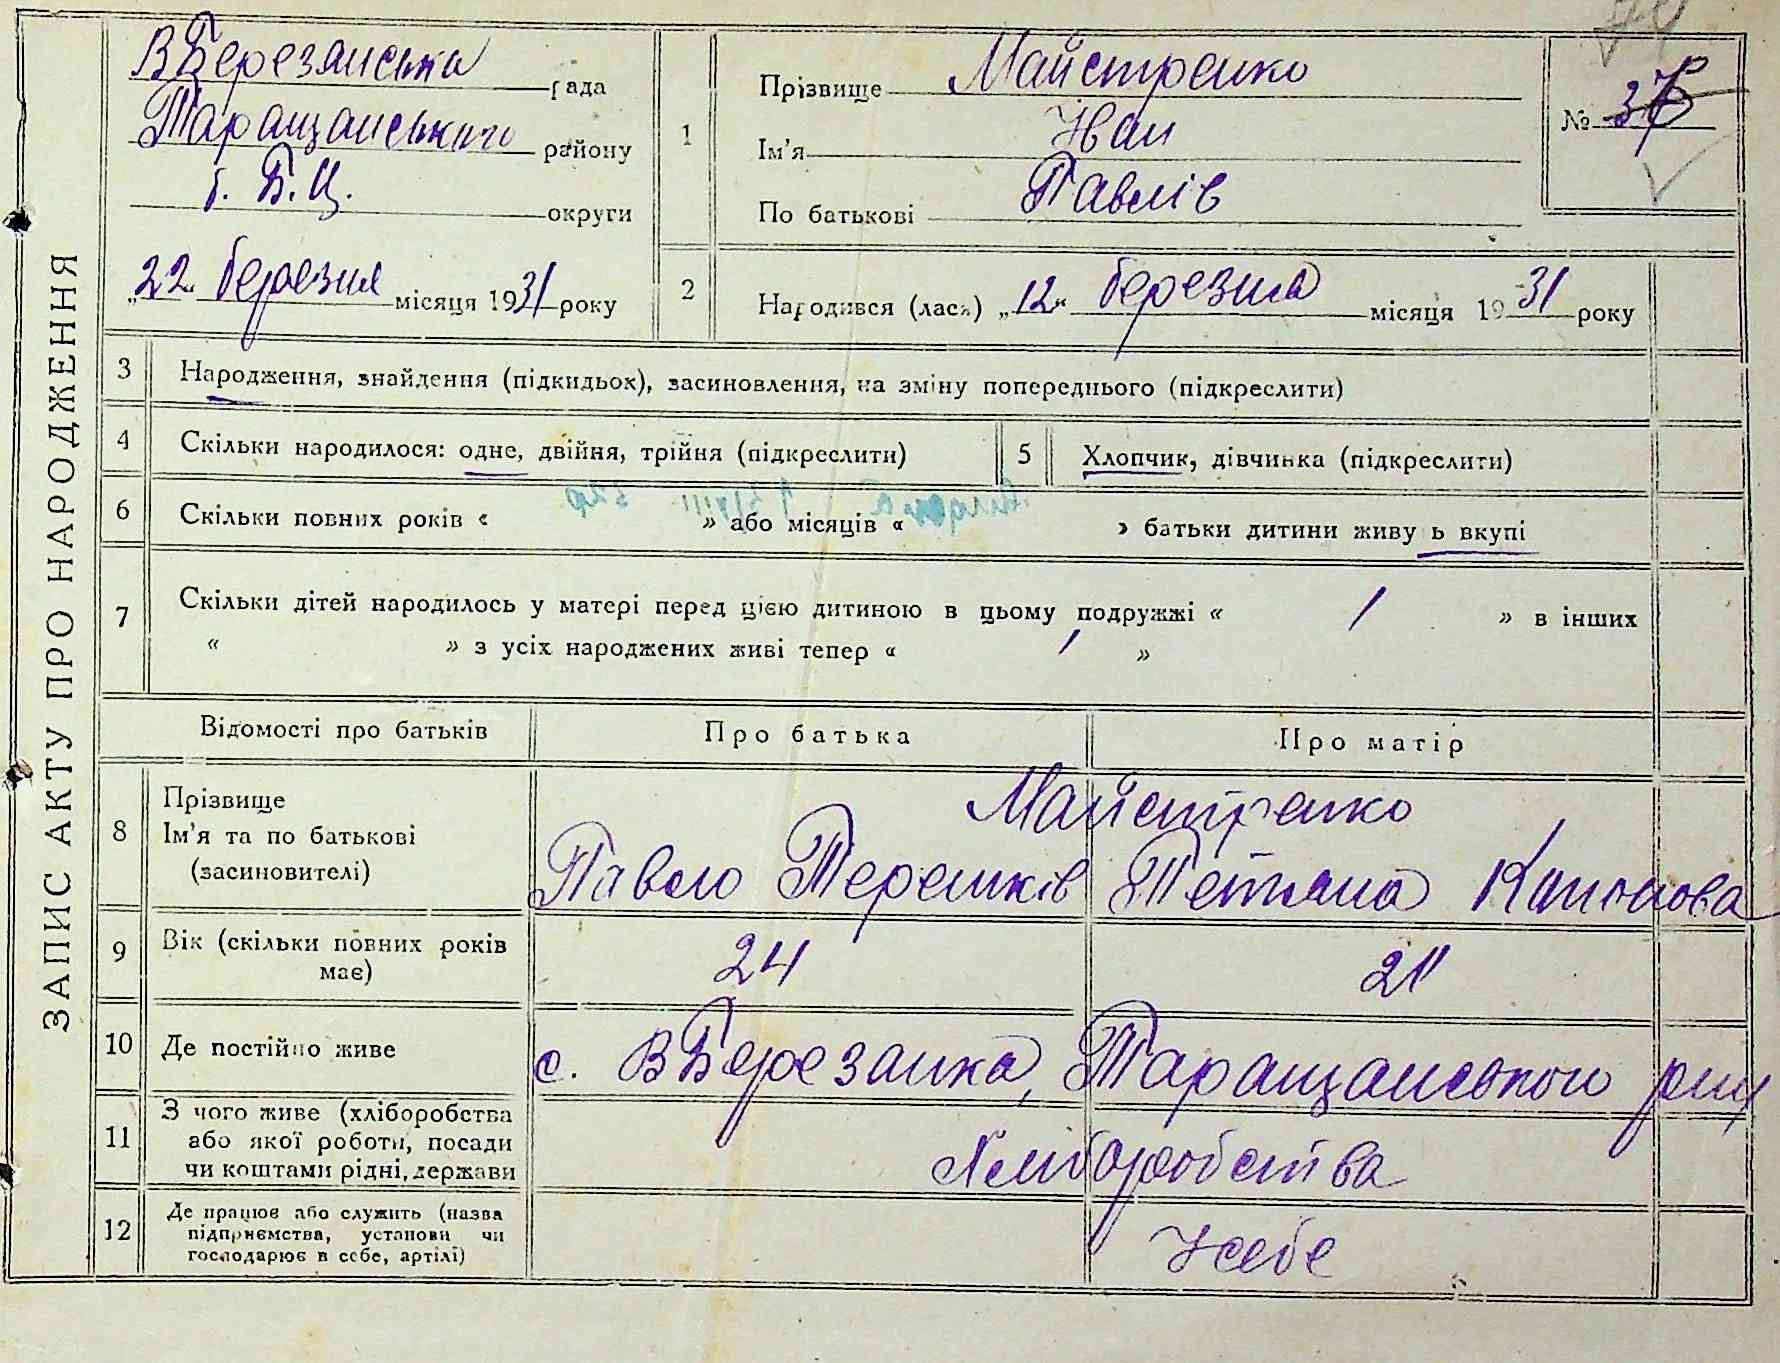 ЗАПИС АКТУ ПРО НАРОДЖЕННЯ
ВБерезанська рада
Таращанського району
б. Б.Ц. округи
„22“ березня місяця 1931 року
1
Прізвище Майстренко
Ім’я Іван
По батькові Павлів
№ 37
2
Народився (лася) „12“ березня місяця 1931 року
3 Народження, знайдення (підкидьок), засиновлення, на зміну попереднього (підкреслити)
4 Скільки народилося: одне, двійня, трійня (підкреслити)
5 Хлопчик, дівчинка (підкреслити)
6 Скільки повних років « » або місяців « » батьки дитини живу ь вкупі
7 Скільки дітей народилось у матері перед цією дитиною в цьому подружжі « 1 » в інших
« » з усіх народжених живі тепер « 1 »
Відомості про батьків Про батька Про матір
8 Прізвище
Ім’я та по батькові
(засиновителі)
Майстренко
Павло Терешків Тетяна
9 Вік (скільки повних років
має)
24 21
10 Де постійно живе с. ВБерезанка, Таращанського р-ну
11 З чого живе (хліборобства
або якої роботи, посади
чи коштами рідні, держави
Хліборобства
12 Де працює або служить (назва
підприємства, установи чи
господарює в себе, артілі)
У себе